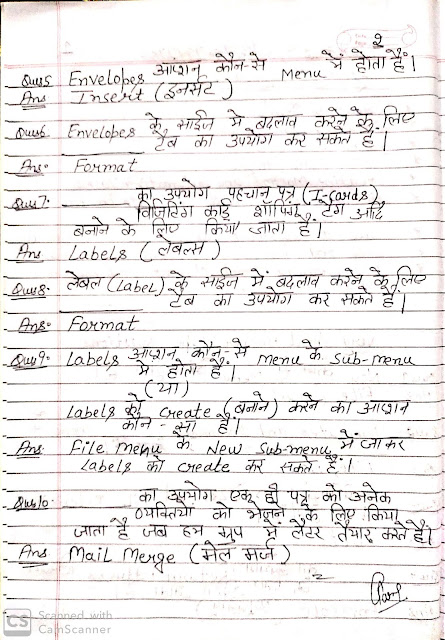 2
Ques5 Envelopes आप्शन कौन-से Menu में होता है।
Ans Insert (इनसर्ट)
Ques6. Envelopes के साईज में बदलाव करने के लिए
_______ टैब का उपयोग कर सकते है।
Ans. Format
Ques7. _______ का उपयोग पहचान पत्र (I-cards)
विजिटिंग कार्ड शॉपिंग टैग आदि
बनाने के लिए किया जाता है।
Ans Labels (लेबल्स)
Ques8. लेबल (Label) के साईज में बदलाव करने के लिए
_______ टैब का उपयोग कर सकते है।
Ans. Format
Ques9. Labels आप्शन कौन-से menu के sub-menu
में होता है।
(या)
Labels को create (बनाने) करने का आप्शन
कौन-सा है।
Ans. File menu के New sub-menu में जाकर
Labels को create कर सकते है।
Ques10. _______ का उपयोग एक ही पत्र को अनेक
व्यक्तियो को भेजने के लिए किया
जाता है जब हम ग्रुप में लैटर तैयार करते है।
Ans Mail Merge (मेल मर्ज)
CS Scanned with
CamScanner